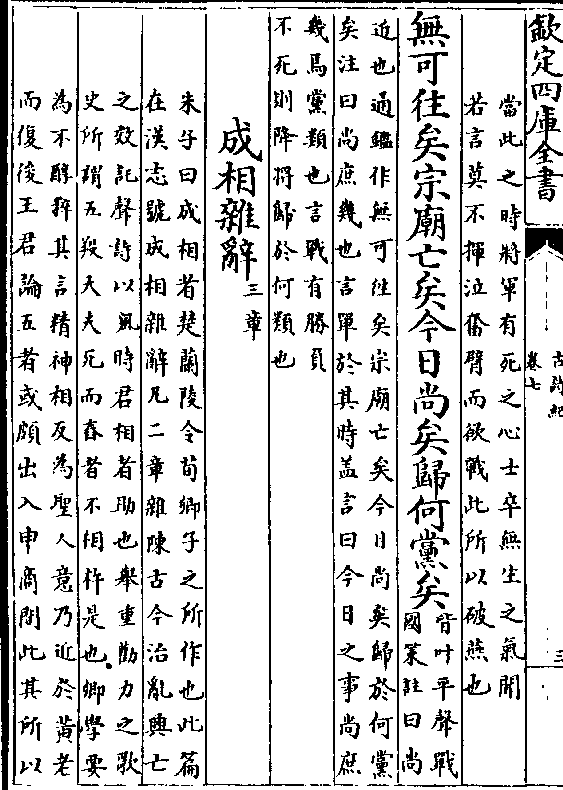 欽定四庫全書
古詩紀
卷七
三
當此之時將軍有死之心士卒無生之氣聞
若言莫不揮泣奮臂而欲戰此所以破燕也
無可往矣宗廟亡矣今日尚矣歸何黨矣皆叶平聲戰
國策註曰尚
近也通鑑作無可往矣宗廟亡矣今日尚矣歸於何黨
矣注曰尚庶幾也言單於其時盖言曰今日之事尚庶
幾焉黨類也言戰有勝負
不死則降将歸於何類也
成相雜辭三章
朱子曰成相者楚蘭陵令荀卿子之所作也此篇
在漢志號成相雜辭凡二章雜陳古今治亂興亡
之效託聲詩以風時君相者助也舉重勸力之歌
史所謂五羖大夫死而舂者不相杵是也卿學要
為不醇粹其言精神相反為聖人意乃近於黃老
而復後王君論五者或頗出入申商間此其所以